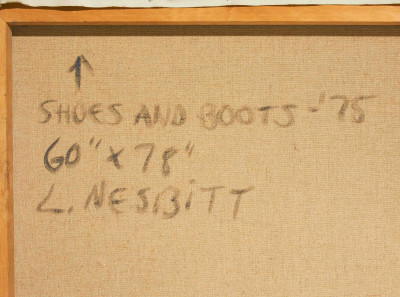 SHOES AND BOOTS - '75
60" x 78"
L. NESBITT